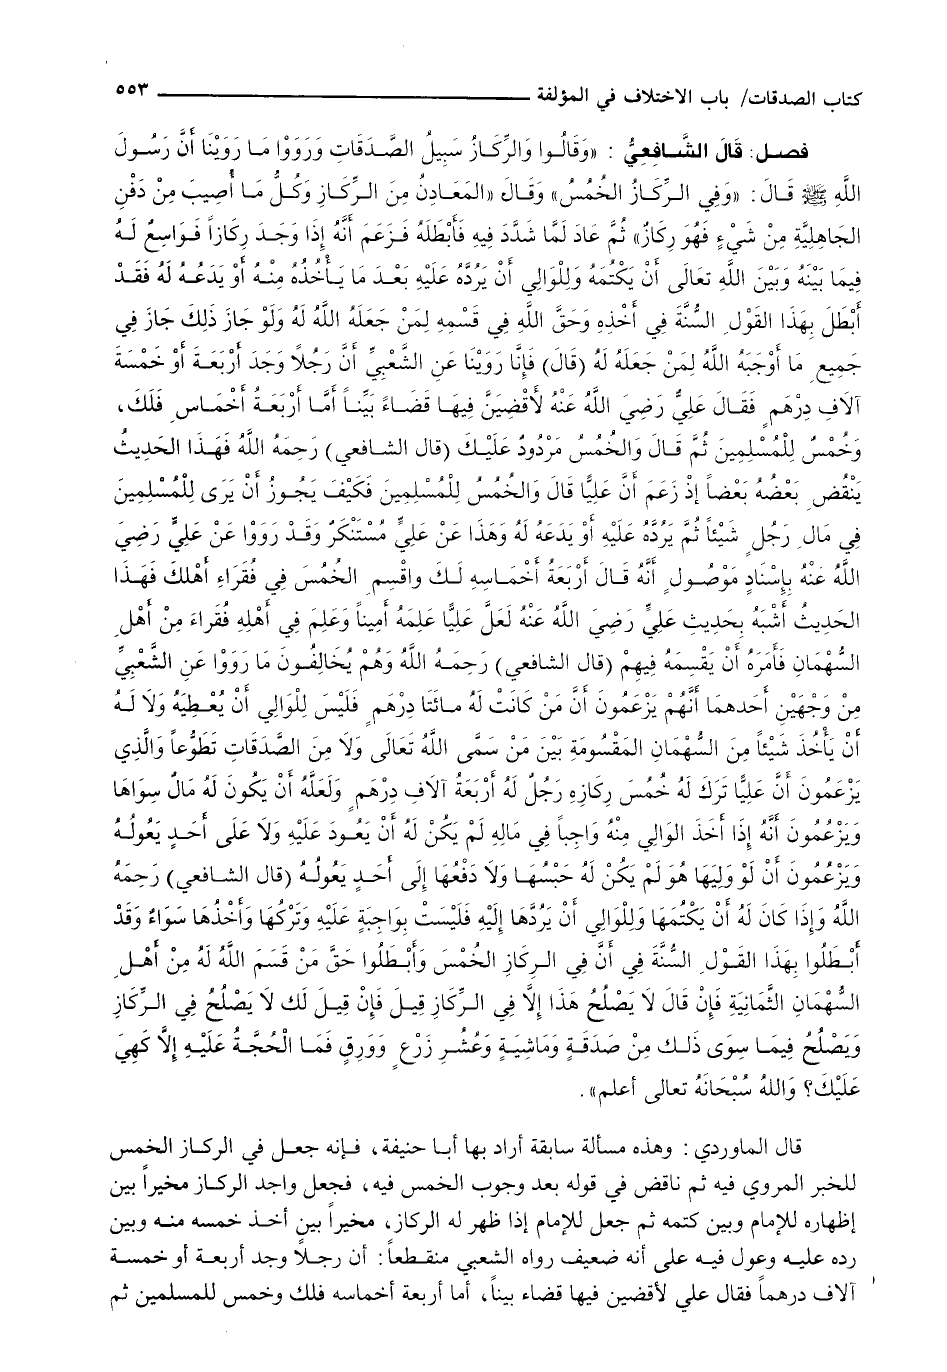 كتاب الصدقات/ باب الاختلاف في المؤلفة ٥٥٣
فصل: قَالَ الشَّافِعِيُّ : «وَقَالُوا وَالرِّكَازُ سَبِيلُ الصَّدَقَاتِ وَرَوَوْا مَا رَوَيْنَا أَنَّ رَسُولَ
اللَّهِ ﷺ قَالَ: «وَفِي الرِّكَازُ الخُمُسُ» وَقَالَ «المَعَادِنُ مِنَ الرِّكَازِ وَكُلُّ مَا أُصِيبَ مِنْ دَفْنِ
الجَاهِلِيَّةِ مِنْ شَيْءٍ فَهُوَ رِكَازٌ» ثُمَّ عَادَ لَمَّا شَدَّدَ فِيهِ فَأَبْطَلَهُ فَزَعَمَ أَنَّهُ إِذَا وَجَدَ رِكَازاً فَوَاسِعٌ لَهُ
فِيمَا بَيْنَهُ وَبَيْنَ اللَّهِ تعَالَى أَنْ يَكْتُمَهُ وَلِلْوَالِي أَنْ يَرُدَّهُ عَلَيْهِ بَعْدَ مَا يَأْخُذُهُ مِنْهُ أَوْ يَدَعُهُ لَهُ فَقَدْ
أَبْطَلَ بِهَذَا القَوْلِ السُّنَّةَ فِي أَخْذِهِ وَحَقَّ اللَّهِ فِي قَسْمِهِ لِمَنْ جَعَلَهُ اللَّهُ لَهُ وَلَوْ جَازَ ذَلِكَ جَازَ فِي
جَمِيعِ مَا أَوْجَبَهُ اللَّهُ لِمَنْ جَعَلَهُ لَهُ (قَالَ) فَإِنَّا رَوَيْنَا عَنِ الشَّعْبِيِّ أَنَّ رَجُلاً وَجَدَ أَرْبَعَةَ أَوْ خَمْسَةَ
آلَافِ دِرْهَمٍ فَقَالَ عَلِيٌّ رَضِيَ اللَّهُ عَنْهُ لَأَقْضِيَنَّ فِيهَا قَضَاءً بَيِّناً أَمَّا أَرْبَعَةُ أَخْمَاسٍ فَلَكَ،
وَخُمْسٌ لِلْمُسْلِمِينَ ثُمَّ قَالَ وَالخُمُسُ مَرْدُودٌ عَلَيْكَ (قال الشافعي) رَحِمَهُ اللَّهُ فَهَذَا الحَدِيثُ
يَنْقُضُ بَعْضُهُ بَعْضاً إِذْ زَعَمَ أَنَّ عَلِيًّا قَالَ وَالخُمُسُ لِلْمُسْلِمِينَ فَكَيْفَ يَجُوزُ أَنْ يَرَى لِلْمُسْلِمِينَ
فِي مَالِ رَجُلٍ شَيْئاً ثُمَّ يَرُدَّهُ عَلَيْهِ أَوْ يَدَعَهُ لَهُ وَهَذَا عَنْ عَلِيٍّ مُسْتَنْكَرٌ وَقَدْ رَوَوْا عَنْ عَلِيٍّ رَضِيَ
اللَّهُ عَنْهُ بِإِسْنَادٍ مَوْصُولٍ أَنَّهُ قَالَ أَرْبَعَةُ أَخْمَاسِهِ لَكَ واقْسِمِ الخُمُسَ فِي فُقَرَاءِ أَهْلِكَ فَهَذَا
الحَدِيثُ أَشْبَهُ بِحَدِيثِ عَلِيٍّ رَضِيَ اللَّهُ عَنْهُ لَعَلَّ عَلِيًّا عَلِمَهُ أَمِيناً وَعَلِمَ فِي أَهْلِهِ فُقَرَاءَ مِنْ أَهْلِ
السُّهْمَانِ فَأَمَرَهُ أَنْ يَقْسِمَهُ فِيهِمْ (قال الشافعي) رَحِمَهُ اللَّهُ وَهُمْ يُخَالِفُونَ مَا رَوَوْا عَنِ الشَّعْبِيِّ
مِنْ وَجْهَيْنِ أَحَدهمَا أَنَّهُمْ يَزْعَمُونَ أَنَّ مَنْ كَانَتْ لَهُ مائَتَا دِرْهَمٍ فَلَيْسَ لِلْوَالِي أَنْ يُعْطِيَهُ وَلَا لَهُ
أَنْ يَأْخُذَ شَيْئاً مِنَ السُّهْمَانِ المَقْسُومَةِ بَيْنَ مَنْ سَمَّى اللَّهُ تَعَالَى وَلَا مِنَ الصَّدَقَاتِ تَطَوُّعاً وَالَّذِي
يَزْعُمُونَ أَنَّ عَلِيًّا تَرَكَ لَهُ خُمُسَ رِكَازِهِ رَجُلٌ لَهُ أَرْبَعَةُ آلَافِ دِرْهَمٍ وَلَعَلَّهُ أَنْ يَكُونَ لَهُ مَالٌ سِوَاهَا
وَيَزْعُمُونَ أَنَّهُ إِذَا أَخَذَ الوَالِي مِنْهُ وَاجِباً فِي مَالِهِ لَمْ يَكُنْ لَهُ أَنْ يَعُودَ عَلَيْهِ وَلَا عَلَى أَحَدٍ يَعُولُهُ
وَيَزْعُمُونَ أَنْ لَوْ وَلِيَهَا هُوَ لَمْ يَكُنْ لَهُ حَبْسُهَا وَلَا دَفْعُهَا إِلَى أَحَدٍ يَعُولُهُ (قال الشافعي) رَحِمَهُ
اللَّهُ وَإِذَا كَانَ لَهُ أَنْ يَكْتُمَهَا وَلِلْوَالِي أَنْ يَرُدَّهَا إِلَيْهِ فَلَيْسَتْ بِوَاجِبَةٍ عَلَيْهِ وَتَرْكُهَا وَأَخْذُهَا سَوَاءٌ وَقَدْ
أَبْطَلُوا بِهَذَا القَوْلِ السُّنَّةَ فِي أَنَّ فِي الرِكَازِ الخُمْسَ وَأَبْطَلُوا حَقَّ مَنْ قَسَمَ اللَّهُ لَهُ مِنْ أَهْلِ
السُّهْمَانِ الثَّمَانِيَةِ فَإِنْ قَالَ لَا يَصْلُحُ هَذَا إِلَّا فِي الرِّكَازِ قِيلَ فَإِنْ قِيلَ لَك لَا يَصْلُحُ فِي الرِّكَازِ
وَيَصْلُحُ فِيمَا سِوَى ذَلِكَ مِنْ صَدَقَةٍ وَمَاشِيَةٍ وَعُشْرِ زَرْعٍ وَوَرِقٍ فَمَا الْحُجَّةُ عَلَيْهِ إِلَّا كَهِيَ
عَلَيْكَ؟ وَاللهُ سُبْحَانَهُ تعالى أعلم».
قال الماوردي : وهذه مسألة سابقة أراد بها أبا حنيفة، فإنه جعل في الركاز الخمس
للخبر المروي فيه ثم ناقض في قوله بعد وجوب الخمس فيه، فجعل واجد الركاز مخيراً بين
إظهاره للإمام وبين كتمه ثم جعل للإمام إذا ظهر له الركاز، مخيراً بين أخذ خمسه منه وبين
رده عليه وعول فيه على أنه ضعيف رواه الشعبي منقطعاً: أن رجلاً وجد أربعة أو خمسة
آلاف درهماً فقال علي لأقضين فيها قضاء بيناً، أما أربعة أخماسه فلك وخمس للمسلمين ثم